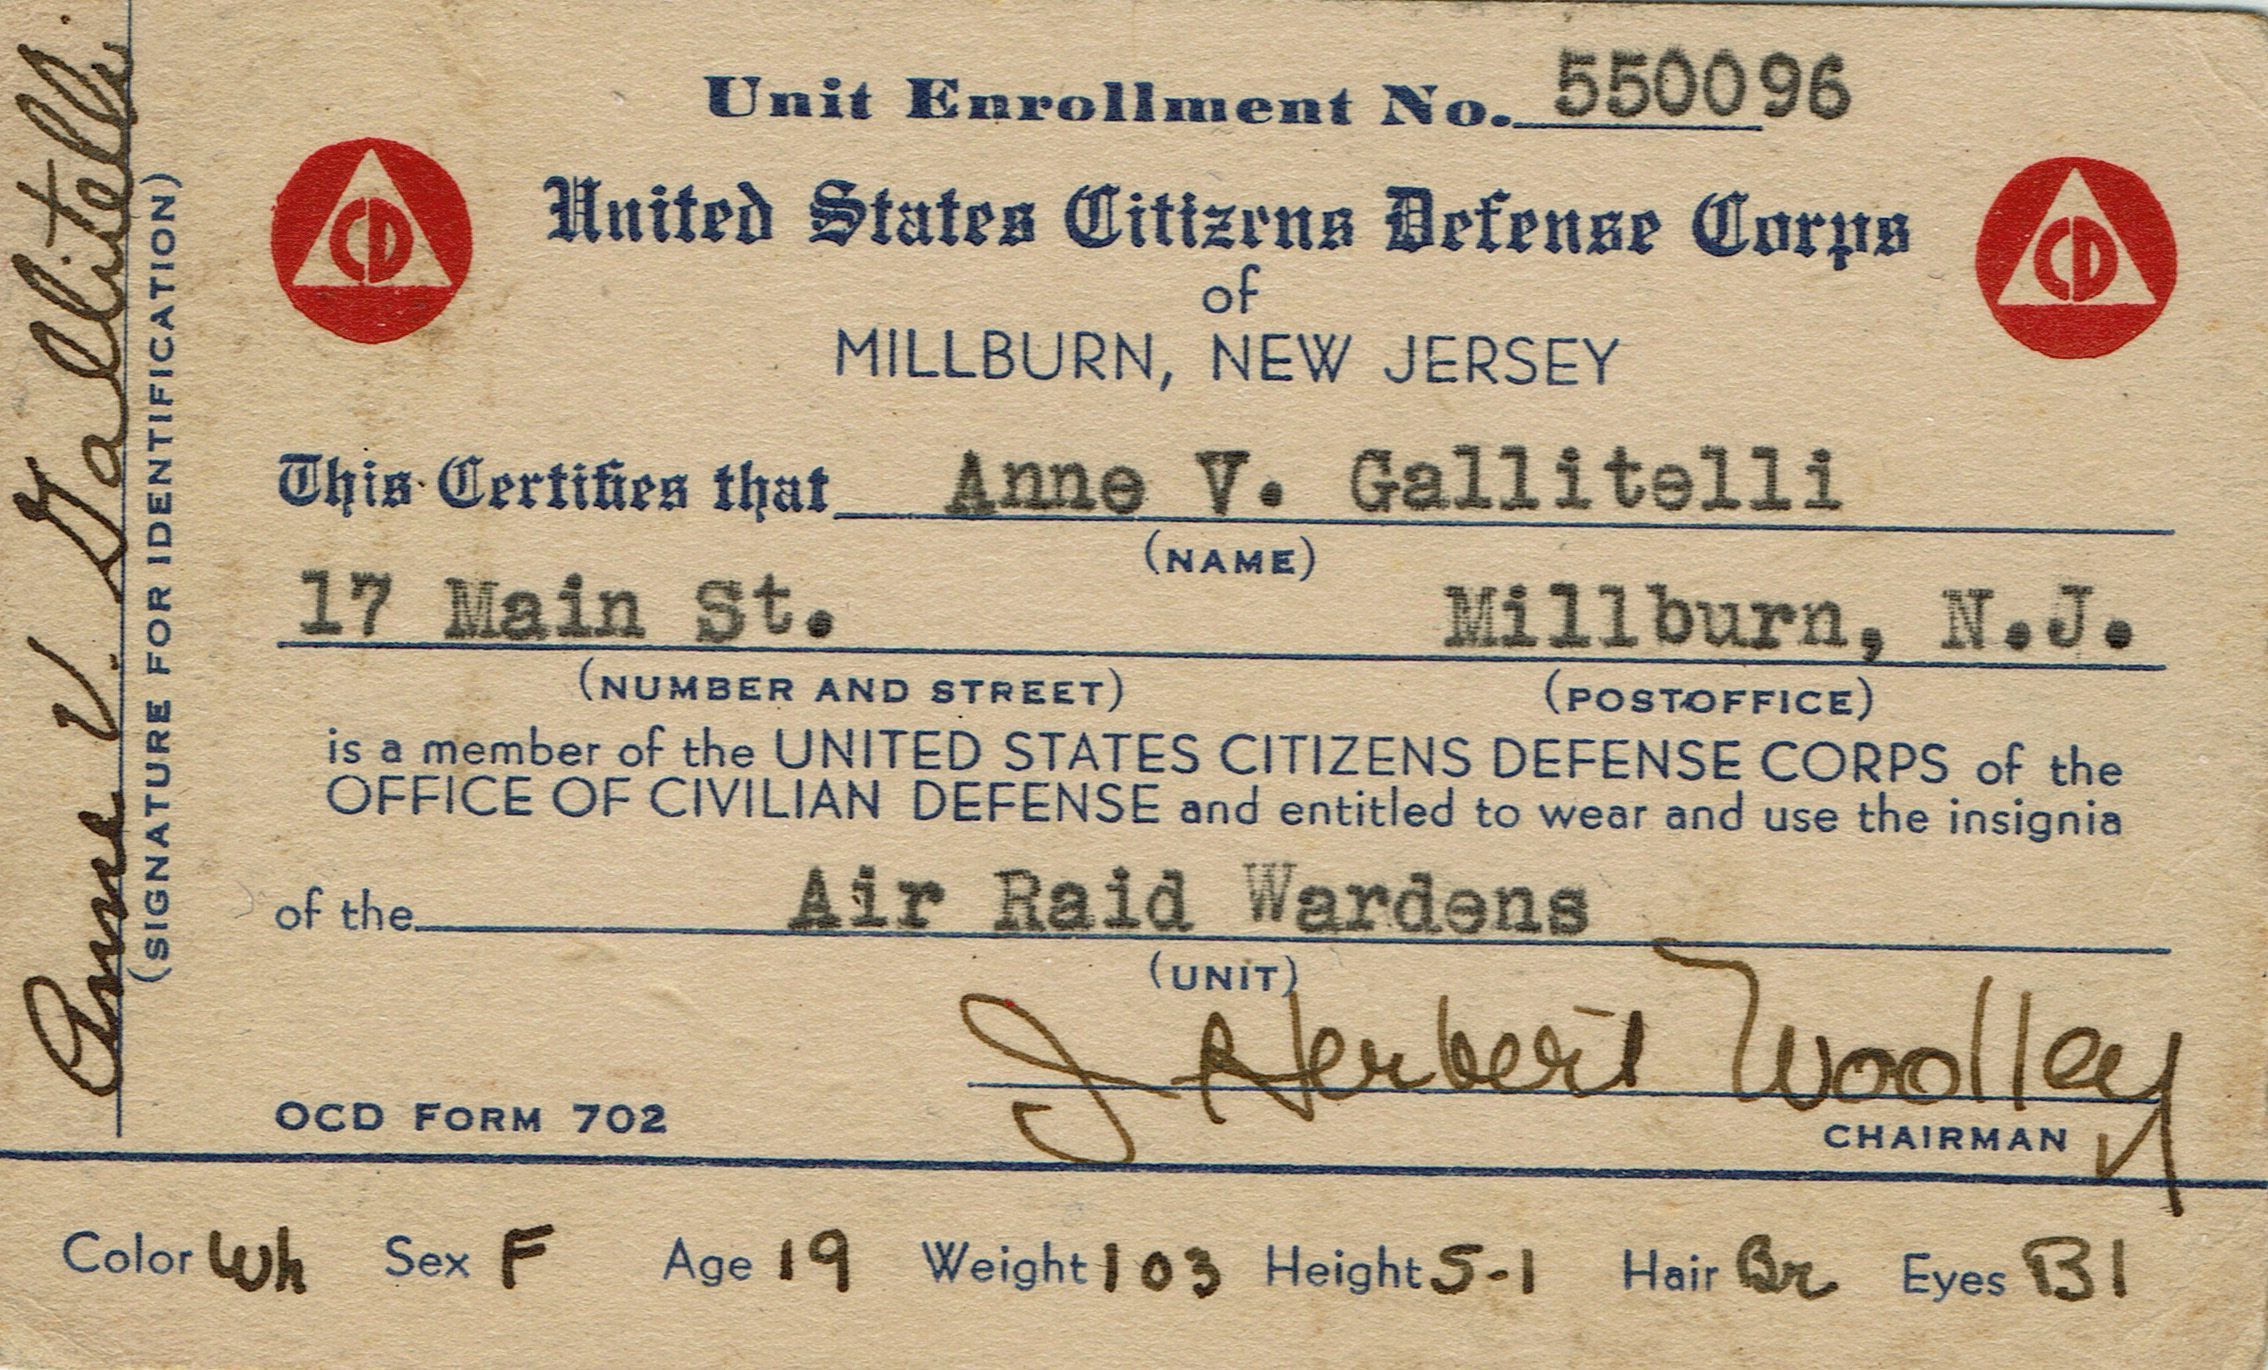 Unit Enrollment No. 550096
CD
CD
United States Citizens Defense Corps
of
MILLBURN, NEW JERSEY
This Certifies that Anne V. Gallitelli
(NAME)
17 Main St. Millburn, N.J.
(NUMBER AND STREET) (POSTOFFICE)
is a member of the UNITED STATES CITIZENS DEFENSE CORPS of the
OFFICE OF CIVILIAN DEFENSE and entitled to wear and use the insignia
of the Air Raid Wardens
(UNIT)
J Herbert Woolley
OCD FORM 702 CHAIRMAN
Color Wh Sex F Age 19 Weight 103 Height 5-1 Hair Br Eyes Bl
Anne V. Gallitelli
(SIGNATURE FOR IDENTIFICATION)